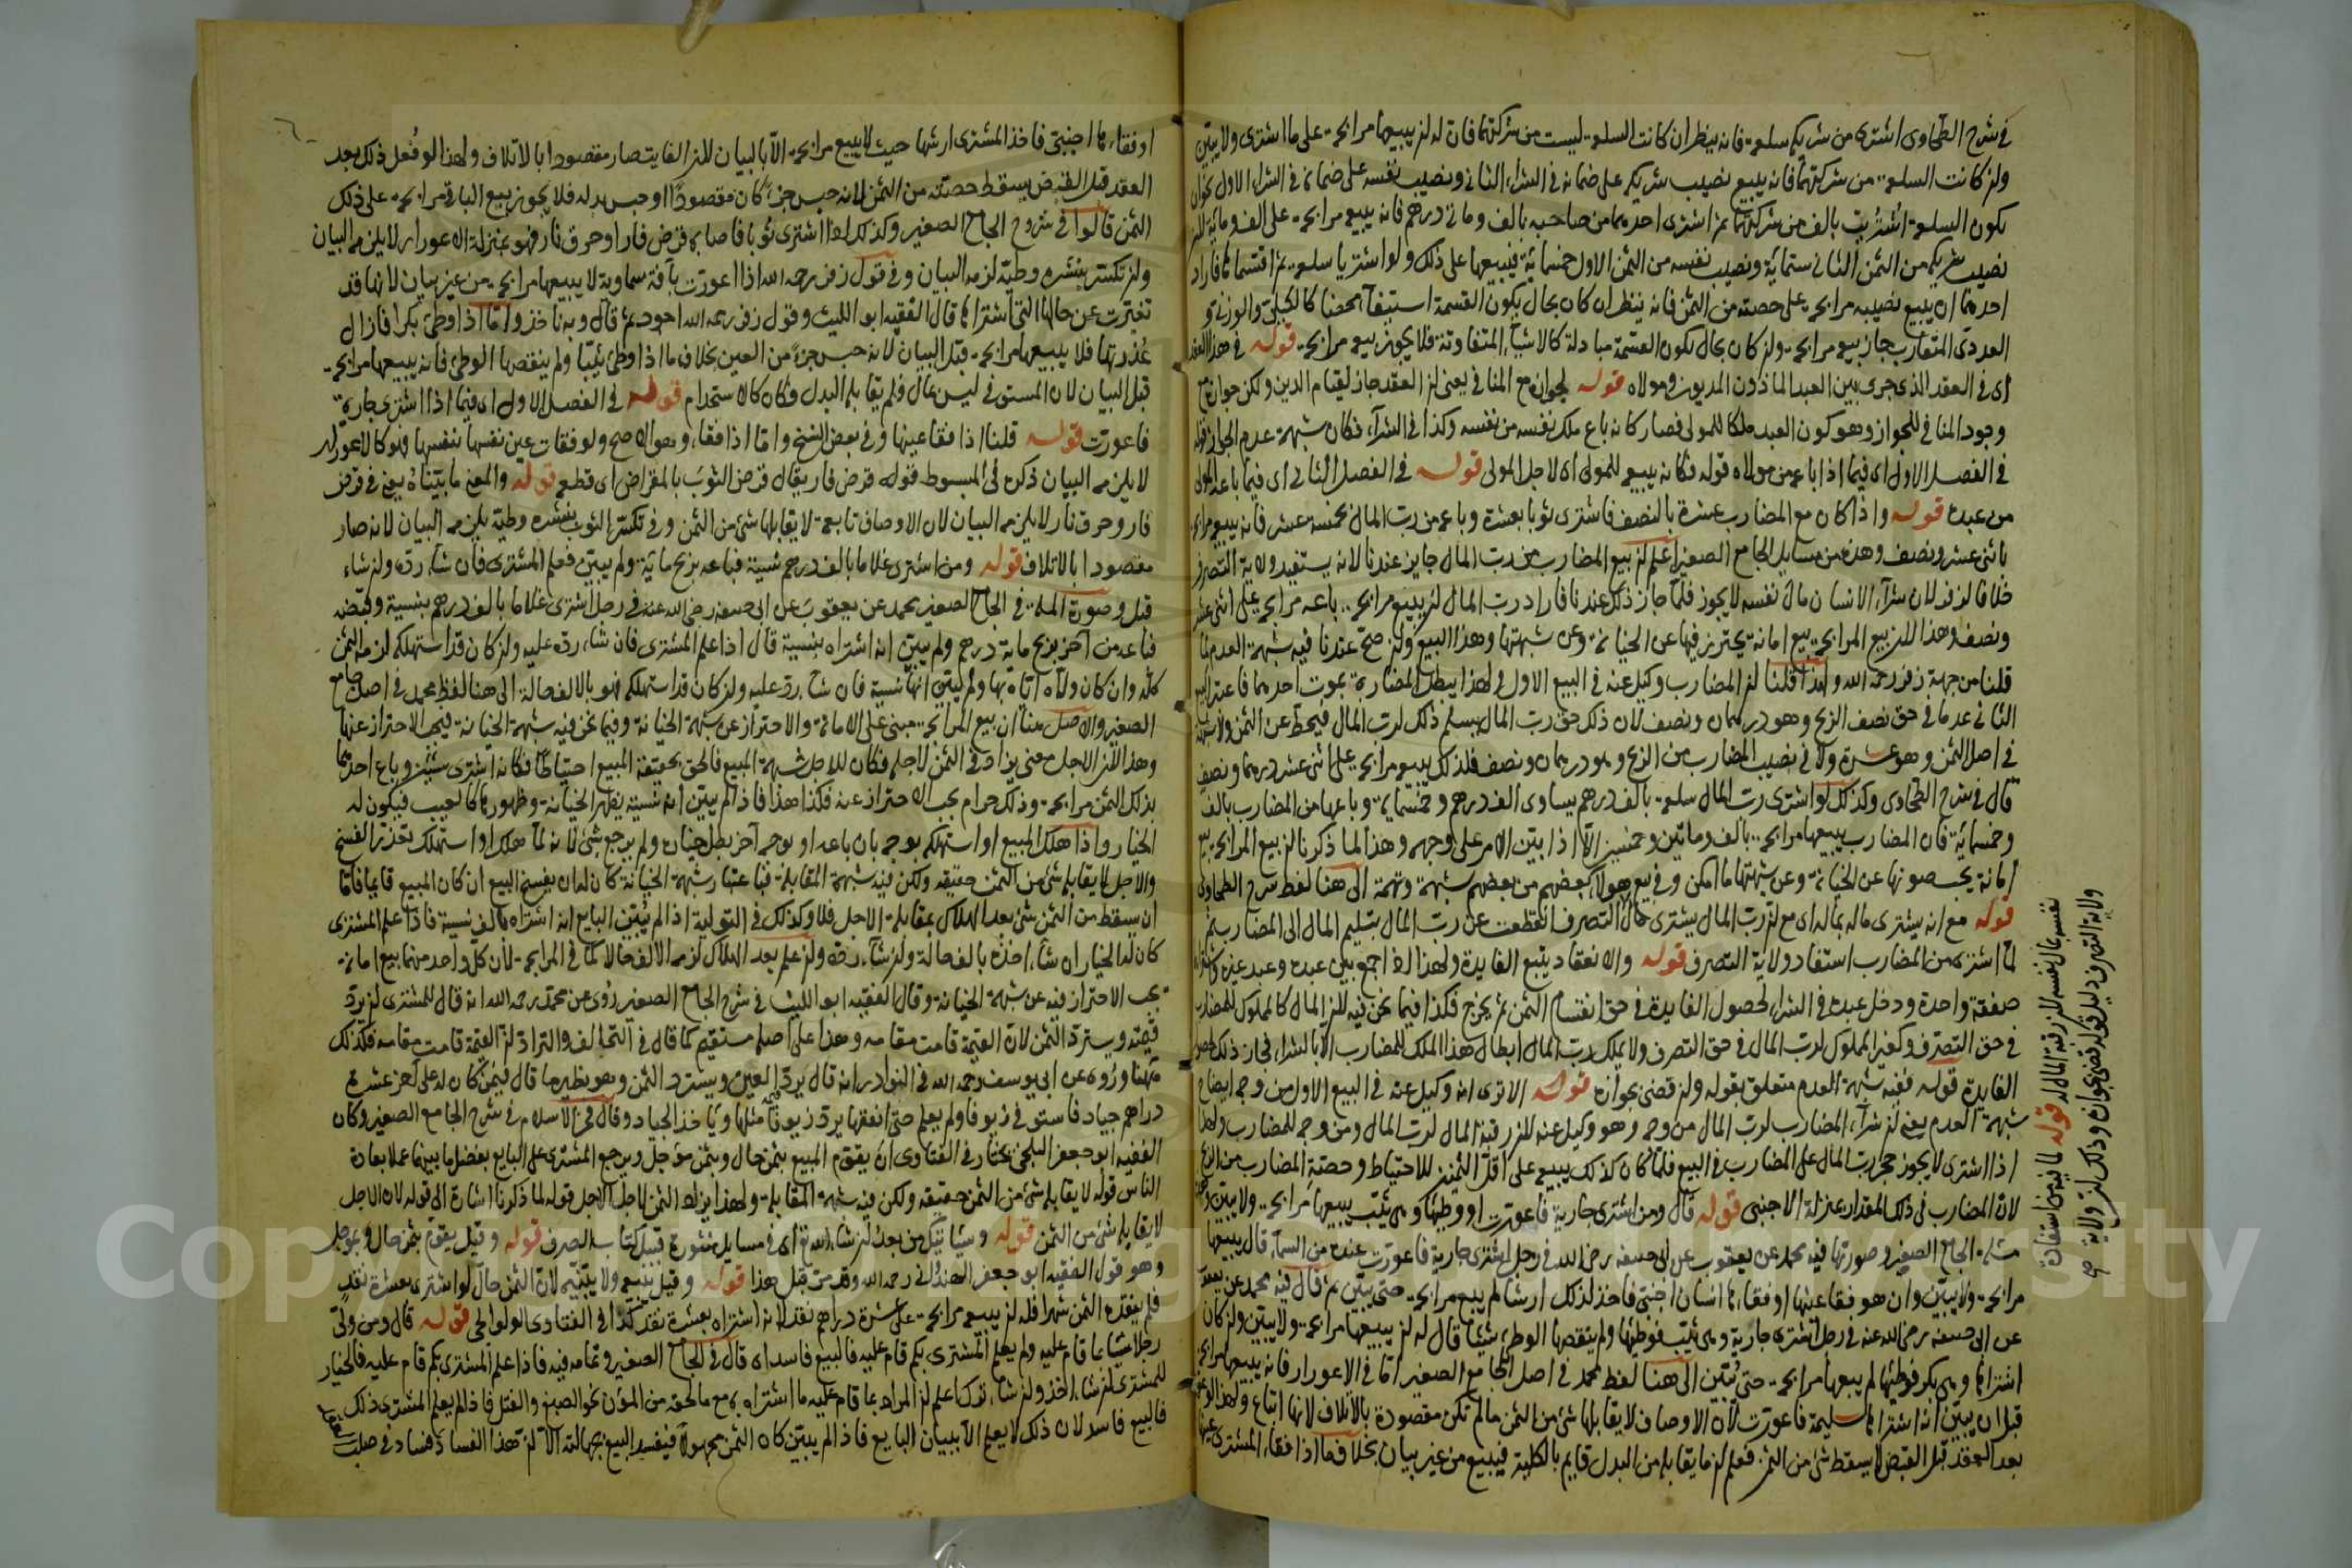 في شرح الطحاوى اشترى من شريكه سلعة فانه ينظر ان كانت السلعة ليست من شركتهما فان له ان يبيعها مرابحة على ما اشترى ولا يبيّن
وان كانت السلعة من شركتهما فانه يبيع نصيب شريكه على ضمانه في الشراء الثاني ونصيب نفسه على ضمانه في الشراء الاول نحو ان
يكون السلعة اشتُريت بالف من شركتهما ثم اشترى احدهما من صاحبه بالف ومائة درهم فانه يبيعه مرابحة على الف
نصيب شريكه من الثمن الثاني ستمائة ونصيب نفسه من الثمن الاول خمسمائة فيبيعها على ذلك ولو اشتريا سلعة ثم اقتسما فاراد
احدهما ان يبيع نصيبه مرابحة على حصته من الثمن فانه ينظر ان كان بحال يكون القسمة استيفاء محضا كالكيلى والوزنى و
العددى المتقارب جاز بيعه مرابحة وان كان بحال يكون القسمة مبادلة كالاشياء المتفاوتة فلا يجوز بيعه مرابحة قوله في هذا العقد
اى في العقد الذى جرى بين العبد الماذون المديون ومولاه قوله لجوازه مع المنافي يعنى ان العقد جاز لقيام الدين ولكن جوازه مع
وجود المنافي للجواز وهو كون العبد ملكا للمولى فصار كانه باع ملك نفسه من نفسه وكذا في الشراء فكان شبهة عدم الجواز قوله
في الفصل الاول اى فيما اذا باعه من مولاه قوله فكانه يبيعه للمولى اى لاجل المولى قوله في الفصل الثاني اى فيما باعه المولى
من عبده قوله واذا كان مع المضارب عشرة بالنصف فاشترى ثوبا بعشرة وباعه من رب المال بخمسة عشر فانه يبيعه مرابحة
باثنى عشر ونصف وهذه من مسايل الجامع الصغير اعلم ان بيع المضارب من رب المال جايز عندنا لانه يستفيد ولاية التصرف
خلافا لزفر لان شراء الانسان مال نفسه لا يجوز فلما جاز ذلك عندنا فاراد رب المال ان يبيع مرابحة باعه مرابحة على اثنى عشر
ونصف وهذا لان بيع المرابحة بيع امانة يحترز فيها عن الخيانة وعن شبهتها وهذا البيع وان صح عندنا فيه شبهة العدم لما
قلنا من جهة زفر رحمه الله ولهذا قلنا ان المضارب وكيل عنه في البيع الاول ولهذا يبطل المضاربة بموت احدهما فاعتبر البيع
الثاني عدما في حق نصف الربح وهو درهمان ونصف لان ذلك حق رب المال يسلم ذلك لرب المال فيحط عن الثمن ولا شبهة
في اصل الثمن وهو عشرة ولا في نصيب المضارب من الربح وهو درهمان ونصف فلذلك يبيع مرابحة على اثنى عشر درهما ونصف
قال في شرح الطحاوى وكذلك لو اشترى رب المال سلعة بالف درهم يساوى الف درهم وخمسمائة وباعها من المضارب بالف
وخمسمائة فان المضارب يبيعها مرابحة بالف ومائتين وخمسين الا اذا بيّن الامر على وجهه وهذا لما ذكرنا ان بيع المرابحة بيع
امانة يجب صونها عن الخيانة وعن شبهتها ما امكن وفي بيع هولاء بعضهم من بعضهم شبهة وتهمة الى هنا لفظ شرح الطحاوى
قوله مع انه يشترى ماله بماله اى مع ان رب المال يشترى قال التصرف انقطعت عن رب المال بتسليم المال الى المضارب ثم
لما اشترى من المضارب استفاد ولاية التصرف قوله والانعقاد يتبع الفايدة ولهذا لو اجمع بين عبده وعبد غيره
صفقة واحدة ودخل عبده في الشراء لحصول الفايدة في حق انقسام الثمن ثم يخرج فكذا فيما نحن فيه لان المال كالمملوك للمضارب
في حق التصرف وكغير المملوك لرب المال في حق التصرف ولا يملك رب المال ابطال هذا الملك للمضارب الا بالشراء فجاز ذلك
الفايدة قوله ففيه شبهة العدم متعلق بقوله وان قضى بجوازه قوله الا ترى انه وكيل عنه في البيع الاول من وجه ايضاح
شبهة العدم يعنى ان شراء المضارب لرب المال من وجه وهو وكيل عنه لان رقبة المال لرب المال ومن وجه للمضارب ولهذا
اذا اشترى لا يجوز حجر رب المال على المضارب في البيع فلما كان كذلك يبيع على اقل الثمنين للاحتياط وحصته المضارب من الربح
لان المضارب في ذلك المقدار بمنزلة الاجنبى قوله قال ومن اشترى جارية فاعورت او وطيها وهى ثيب يبيعها مرابحة ولا يبين
الجامع الصغير وصورتها فيه محمد عن يعقوب عن ابى حنيفة رضى الله في رجل اشترى جارية فاعورت عنده من السماء قال يبيعها
مرابحة ولا يبيّن وان هو فقا عينها او فقاها انسان اجنبى فاخذ لذلك ارشا لم يبع مرابحة حتى يبيّن ثم قال فيه محمد عن يعقوب
عن ابى حنيفة رضى الله عنه في رجل اشترى جارية وهى ثيب فوطيها ولم ينقصها الوطى شيئا قال له ان يبيعها مرابحة ولا يبين وان كان
اشتراها وهى بكر فوطيها لم يبعها مرابحة حتى يُبيّن الى هنا لفظ محمد في اصل الجامع الصغير اما في الاعورار فانه يبيعها مرابحة
قبل ان يبين انه اشتراها سليمة فاعورت لان الاوصاف لا يقابلها شئ من الثمن ما لم تكن مقصودة بالاتلاف لانها اتباع ولهذا
بعد العقد قبل القبض لا يسقط شئ من الثمن فعلم ان ما يقابله من البدل قايم بالكلية فيبيع من غير بيان بخلاف ما اذا فقاء المشترى عينها
نفسه بمال نفسه لان رقبة المال له قوله لما فيه من استفادة
ولاية التصرف دليل قوله قضى بجوازه وذلك ان ولاية صح
او فقاءها اجنبى فاخذ المشترى ارشها حيث لا يبيع مرابحة الا بالبيان لان الفايت صار مقصودا بالاتلاف ولهذا لو فُعل ذلك بعد
العقد قبل القبض يسقط حصته من الثمن لانه حبس جزءً كان مقصودًا او حبس بدله فلا يجوز بيع الباقى مرابحة على ذلك
الثمن قالوا في شروح الجامع الصغير وكذلك لو اشترى ثوبا فاصابه قرض فار او حرق نار فهو بمنزلة الاعورار لا يلزمه البيان
ولو تكسّر بنشره وطيّه لزمه البيان وفي قول زفر رحمه الله اذا اعورت بآفة سماوية لا يبيعها مرابحة من غير بيان لانها قد
تغيرت عن حالها التى اشتراها قال الفقيه ابو الليث وقول زفر رحمه الله اجود ثم قال وبه ناخذ واما اذا وطئ بكرا فازال
عُذرتها فلا يبيعها مرابحة قبل البيان لانه حبس جزءً من العين بخلاف ما اذا وطئ ثيبا ولم ينقصها الوطئ فانه يبيعها مرابحة
قبل البيان لان المستوفى ليس بمال فلم يقابله البدل فكان كالاستخدام قوله في الفصل الاول اى فيما اذا اشترى جارية
فاعورت قوله قلنا اذا فقا عينها وفي بعض النسخ واما اذا فقاء وهو الاصح ولو فقات عين نفسها بنفسها فهو كالاعورار
لا يلزمه البيان ذكره فى المبسوط قوله قرض فار يقال قرض الثوبَ بالمقراض اى قطعه قوله والمعنى ما بيّناهُ يعنى في قرض
فار وحرق نار لا يلزمه البيان لان الاوصاف تابعة لا يقابلها شئ من الثمن وفي تكسّر الثوب بنشره وطيّه يلزمه البيان لانه صار
مقصودا بالاتلاف قوله ومن اشترى غلاما بالف درهم نسية فباعه بربح ماية ولم يبيّن فعلم المشترى فان شاء ردّه وان شاء
قبل وصورة المسئلة في الجامع الصغير محمد عن يعقوبَ عن ابى حنيفة رضى الله عنه في رجل اشترى غلاما بالف درهم بنسية وقبضه
فباعه من آخر بربح ماية درهم ولم يبيّن انه اشتراه بنسية قال اذا علم المشترى فان شاء ردّه عليه وان كان قد استهلكه لزمه الثمن
كله وان كان ولاه اياه بها ولم يُبيّن انها نسية فان شاء ردّه عليه وان كان قد استهلكه فهو بالالف حالة الى هنا لفظ محمد في اصل جامع
الصغير والاصل هنا ان بيع المرابحة مبنى على الامانة والاحتراز عن شبهة الخيانة وفيما نحن فيه شبهة الخيانة فيجب الاحتراز عنها
وهذا لان للاجل معنى يزاد في الثمن لاجله فكان للاجل شبهة المبيع فالحق بحقيقة المبيع احتياطًا فكانه اشترى شيئين وباع احدهما
بذلك الثمن مرابحة وذلك حرام يجب الاحتراز عنه فكذا هذا فاذا لم يبيّن انه نسية يظهر الخيانة وظهورها كالعيب فيكون له
الخيار واذا هلك المبيع او استهلكه بوجه بان باعه او بوجه آخر بطل خياره ولم يرجع بشئ لانه لما هلك او استهلك تعذر الفسخ
والاجل لا يقابله شئ من الثمن حقيقة ولكن فيه شبهة المقابلة فباعتبار شبهة الخيانة كان له ان يفسخ البيع ان كان المبيع قايما فاما
ان يسقط من الثمن شئ بعد الهلاك بمقابلة الاجل فلا وكذلك في التولية اذا لم يُبيّن البايع انه اشتراه بالف نسية فاذا علم المشترى
كان له الخيار ان شاء اخذه بالف حالة وان شاء ردّه وان علم بعد الهلاك لزمه الالف حالا كما في المرابحة لان كل واحد منهما بيع امانة
يجب الاحتراز فيه عن شبهة الخيانة وقال الفقيه ابو الليث في شرح الجامع الصغير رُوى عن محمد رحمه الله انه قال للمشترى ان يردّ
قيمته ويسترد الثمن لان القيمة قامت مقامه وهذا على اصله مستقيم كما قال في التحالف والتراد ان القيمة قامت مقامه فكذلك
ههنا ورُوى عن ابى يوسف رحمه الله في النوادر انه قال يردّ العين ويسترد الثمن وهو نظير ما قال فيمن كان له على آخر عشرة
دراهم جياد فاستوفى زيوفا ولم يعلم حتى انفقها يردّ زيوفا مثلها ويأخذ الجياد وقال فخر الاسلام في شرح الجامع الصغير وكان
الفقيه ابو جعفر البلخى يختار في الفتاوى ان يقوّم المبيع بثمن حال وبثمن مؤجل ويرجع المشترى على البايع بفضل ما بينهما عملا بعادة
الناس قوله لا يقابله شئ من الثمن حقيقة ولكن فيه شبهة المقابلة ولهذا يزاد الثمن لاجل الاجل قوله لما ذكرنا اشارة الى قوله لان الاجل
لا يقابله شئ من الثمن قوله وسياتيك من بعدُ ان شاء الله تعالى اى في مسايل منثورة قبيل كتاب الصرف قوله وقيل يقوّم بثمن حال وبمؤجل
وهو قول الفقيه ابو جعفر الهندُوانى رحمه الله وقد مرّت قبل هذا قوله وقيل يبيعه ولا يبيّنه لان الثمن حالّ لو اشترى بعشرة نقدٍ
فلم ينقده الثمن شهرا فله ان يبيعه مرابحة على عشرة دراهم نقد لانه اشتراه بعشرة نقد كذا في الفتاوى الولوالجى قوله قال ومن ولّى
رجلا شيئا بما قام عليه ولم يعلم المشترى بكم قام عليه فالبيع فاسد اى قال في الجامع الصغير وتمامه فيه فاذا علم المشترى بكم قام عليه فالخيار
للمشترى ان شاء اخذ وان شاء ترك اعلم ان المراد بما قام عليه ما اشتراه به مع ما لحقه من المؤن نحو الصبغ والفتل فاذا لم يعلم المشترى ذلك
فالبيع فاسد لان ذلك لا يعلم الا ببيان البايع فاذا لم يبيّن كان الثمن مجهولًا فيفسد البيع بجهالته الا ان هذا الفساد فساد في صلب
العقد
Copyright © King Saud University